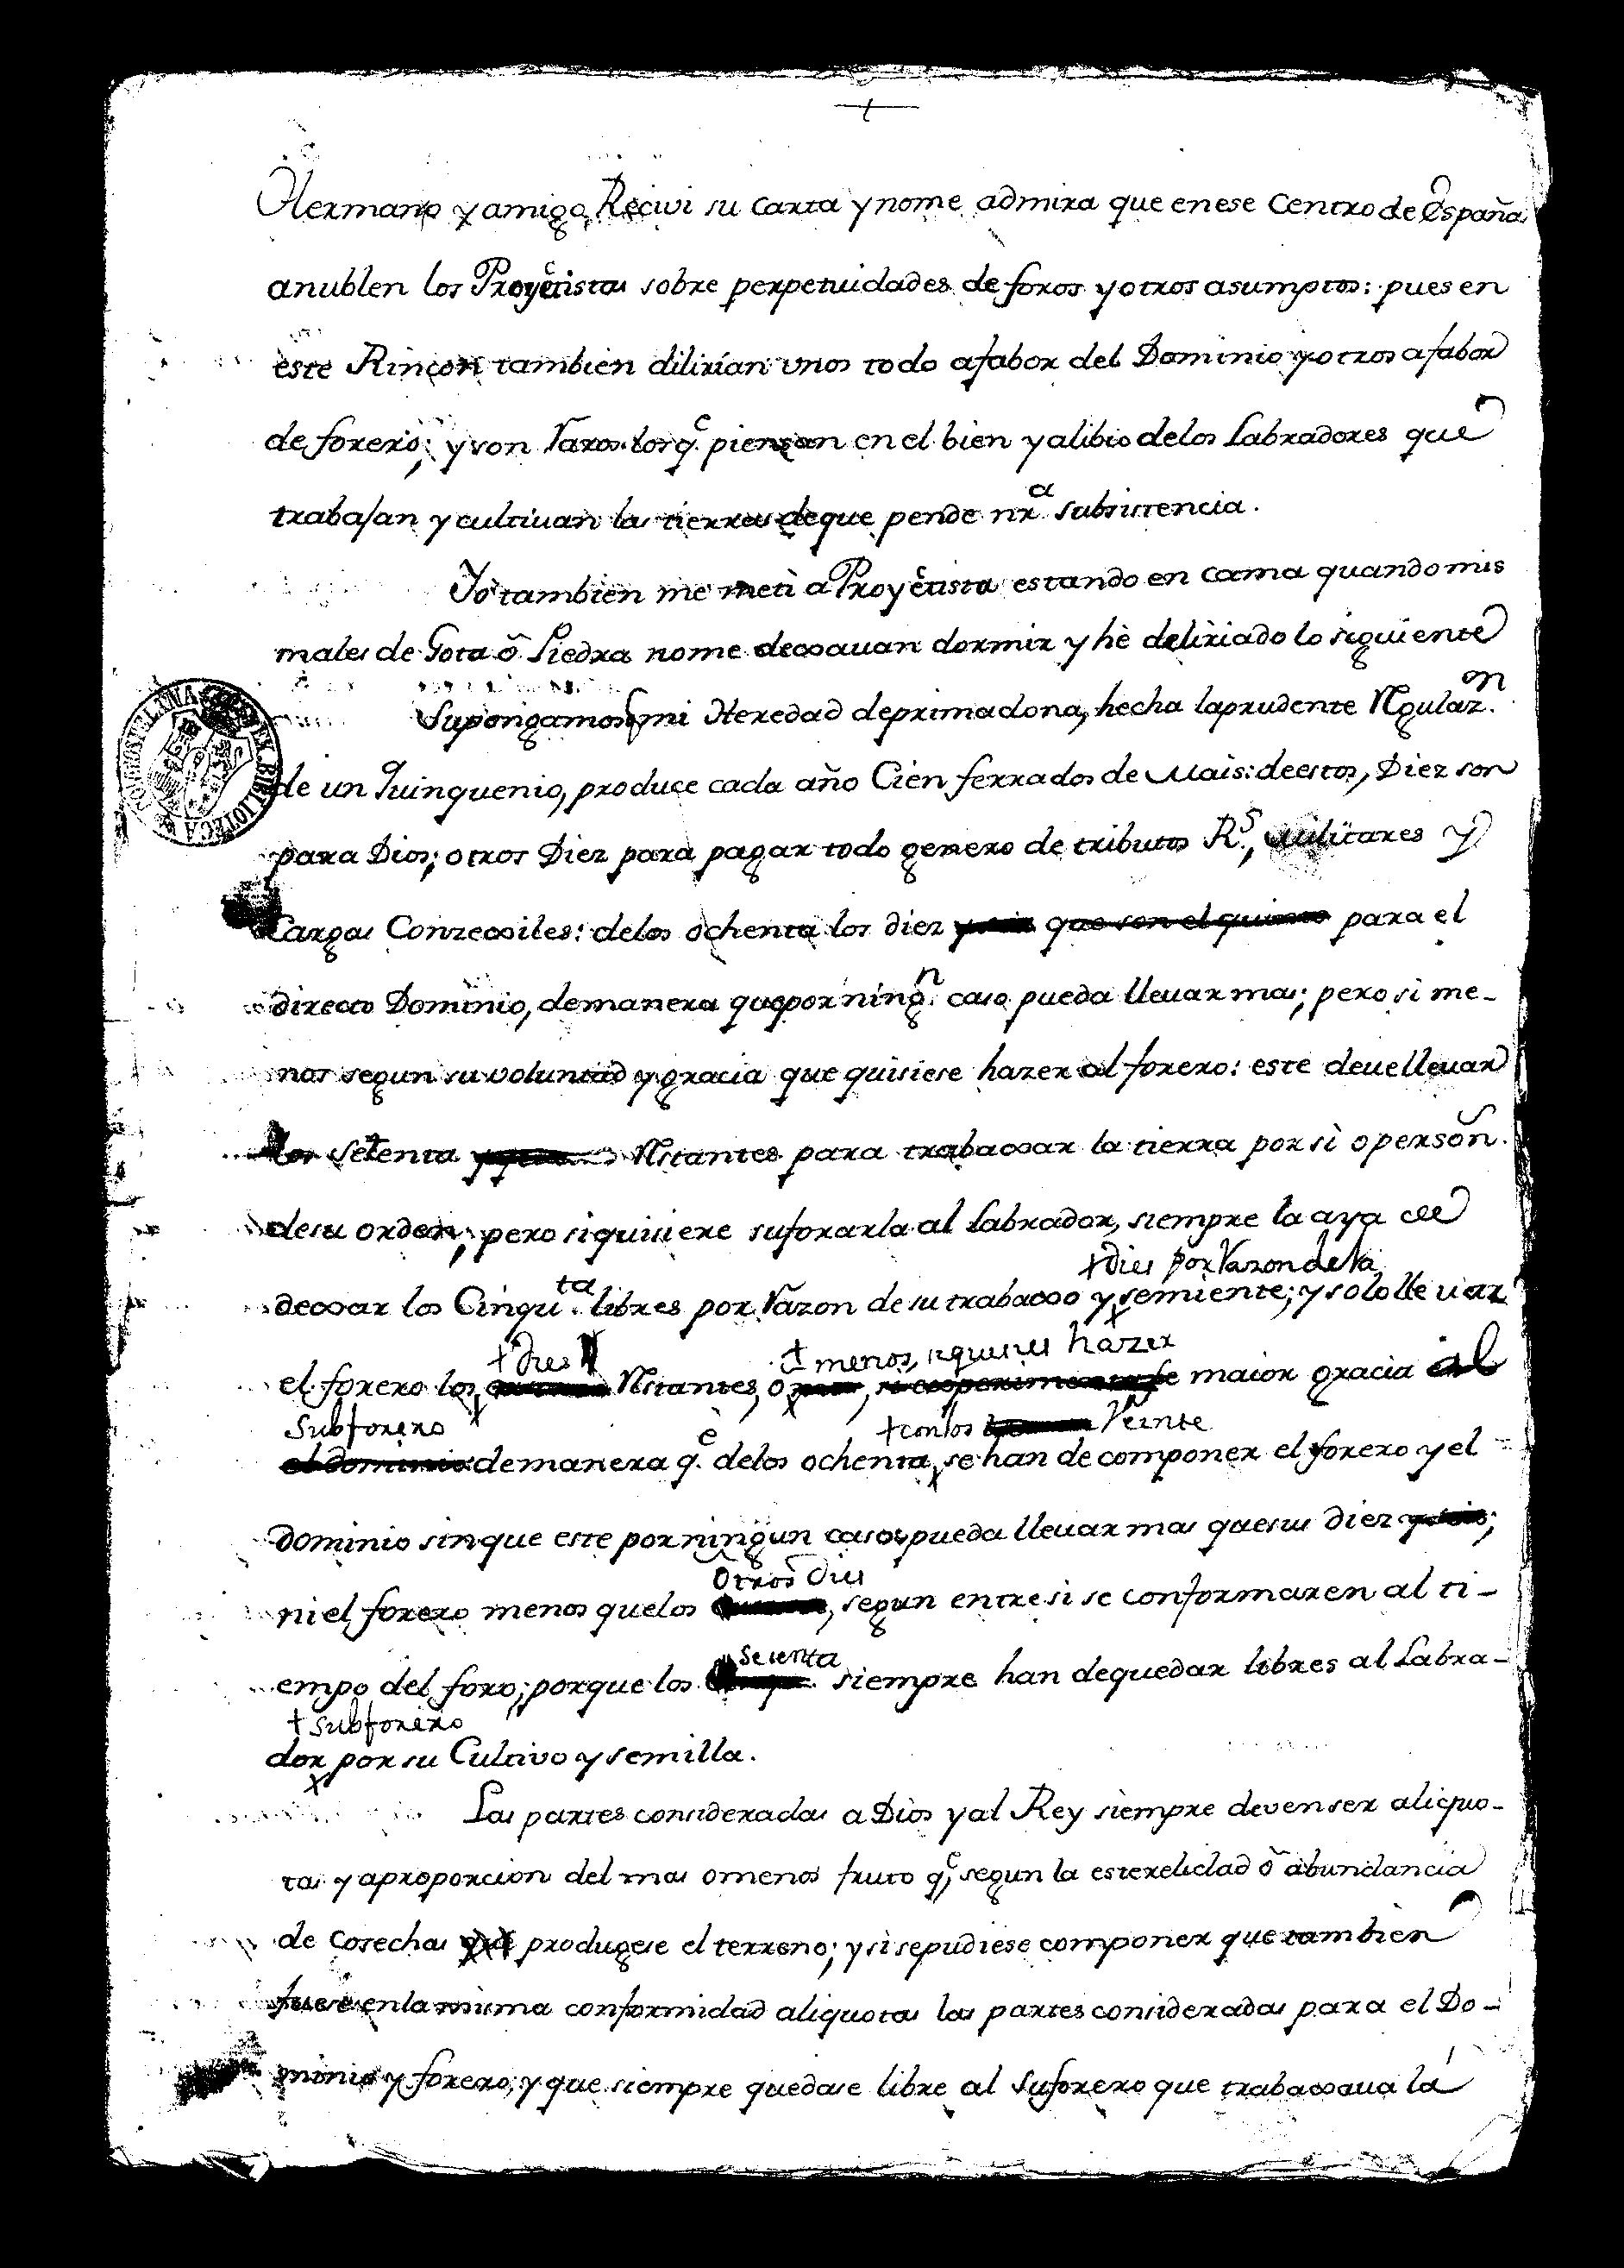 +
Hermano y amigo, Recivi su carta y nome admira que enese Centro de España
anublen los Proyectistas sobre perpetuidades de foros y otros asumptos: pues en
este Rincon tambien dilirían unos todo afabor del Dominio y otros afabor
de forero; y son raros los q.e piensan en el bien y alibio delos Labradores que
trabajan y cultiuan las tierras deque pende nr.a subsistencia.
Yo tambien me meti a Proyectista estando en cama quando mis
males de Gota ô Piedra nome dexauan dormir y hè deliriado lo siguiente
Supongamos mi Heredad deprimadona, hecha laprudente Regulaz.on
de un Quinquenio, produce cada año Cien ferrados de Mais: deestos, Diez son
para Dios; otros Diez para pagar todo genero de tributos R.s, Militares y
Cargas Conzexiles: delos ochenta los diez y seis que son el quinto para el
directo Dominio, demanera quepor ning.n caso pueda lleuar mas; pero si me-
nos segun su voluntad y gracia que quisiese hazer al forero: este deuelleuar
los setenta Restantes para trabaxar la tierra por sì o person.
desu orden; pero siquisiere suforarla al Labrador, siempre la aya de
+ dies por razon dela
dexar los Cinqu.ta libres por razon de su trabaxo y semiente; y solo lleuar
+ dies + menos, siquisies hazer
el forero los Restantes, o maior gracia al
Subforero + conlos Veinte
el dominio demanera q.e delos ochenta se han de componer el forero y el
dominio sinque este por ningun caso pueda lleuar mas quesus diez y seis;
Otros dies
ni el forero menos quelos , segun entre si se conformaren al ti-
sesenta
empo del foro; porque los siempre han dequedar libres al Labra-
+ subforero
dor por su Cultivo y semilla.
Las partes consideradas a Dios y al Rey siempre deven ser aliquo-
tas y aproporcion del mas omenos fruto q.e segun la esterelidad ô abundancia
de Cosechas que produgese el terreno; y si sepudiese componer que tambien
fuese enla misma conformidad aliquotas las partes consideradas para el Do-
minio y forero; y que siempre quedase libre al Suforero que trabaxaua la
BIBLIOTECA